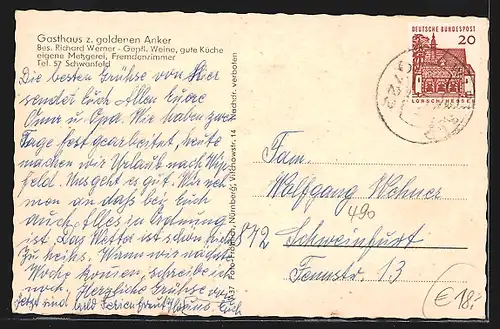 Gasthaus z. goldenen Anker
Bes. Richard Werner - Gepfl. Weine, gute Küche
eigene Metzgerei, Fremdenzimmer
Tel. 57 Schwanfeld
Die besten Grüße von hier
sendet Euch Allen Eure
Oma u. Opa. Wir haben zwei
Tage fest gearbeitet, heute
machen wir Urlaub nach Wip-
feld. Uns geht es gut. Wir neh-
men an daß bei Euch
auch Alles in Ordnung
ist. Das Wetter ist schön nicht
zu heiß. Wann wir nächste
Woche kommen, schreibe ich
noch. Herzliche Grüße
jetzt sind bald Ferien
Foto-Fröhlich, Nürnberg, Vilchowstr. 14 Nachdr. verboten
DEUTSCHE BUNDESPOST
20
LORSCH/HESSEN
Fam.
Wolfgang Wehner
490
872 Schweinfurt
Fennstr. 13
€ 18,-